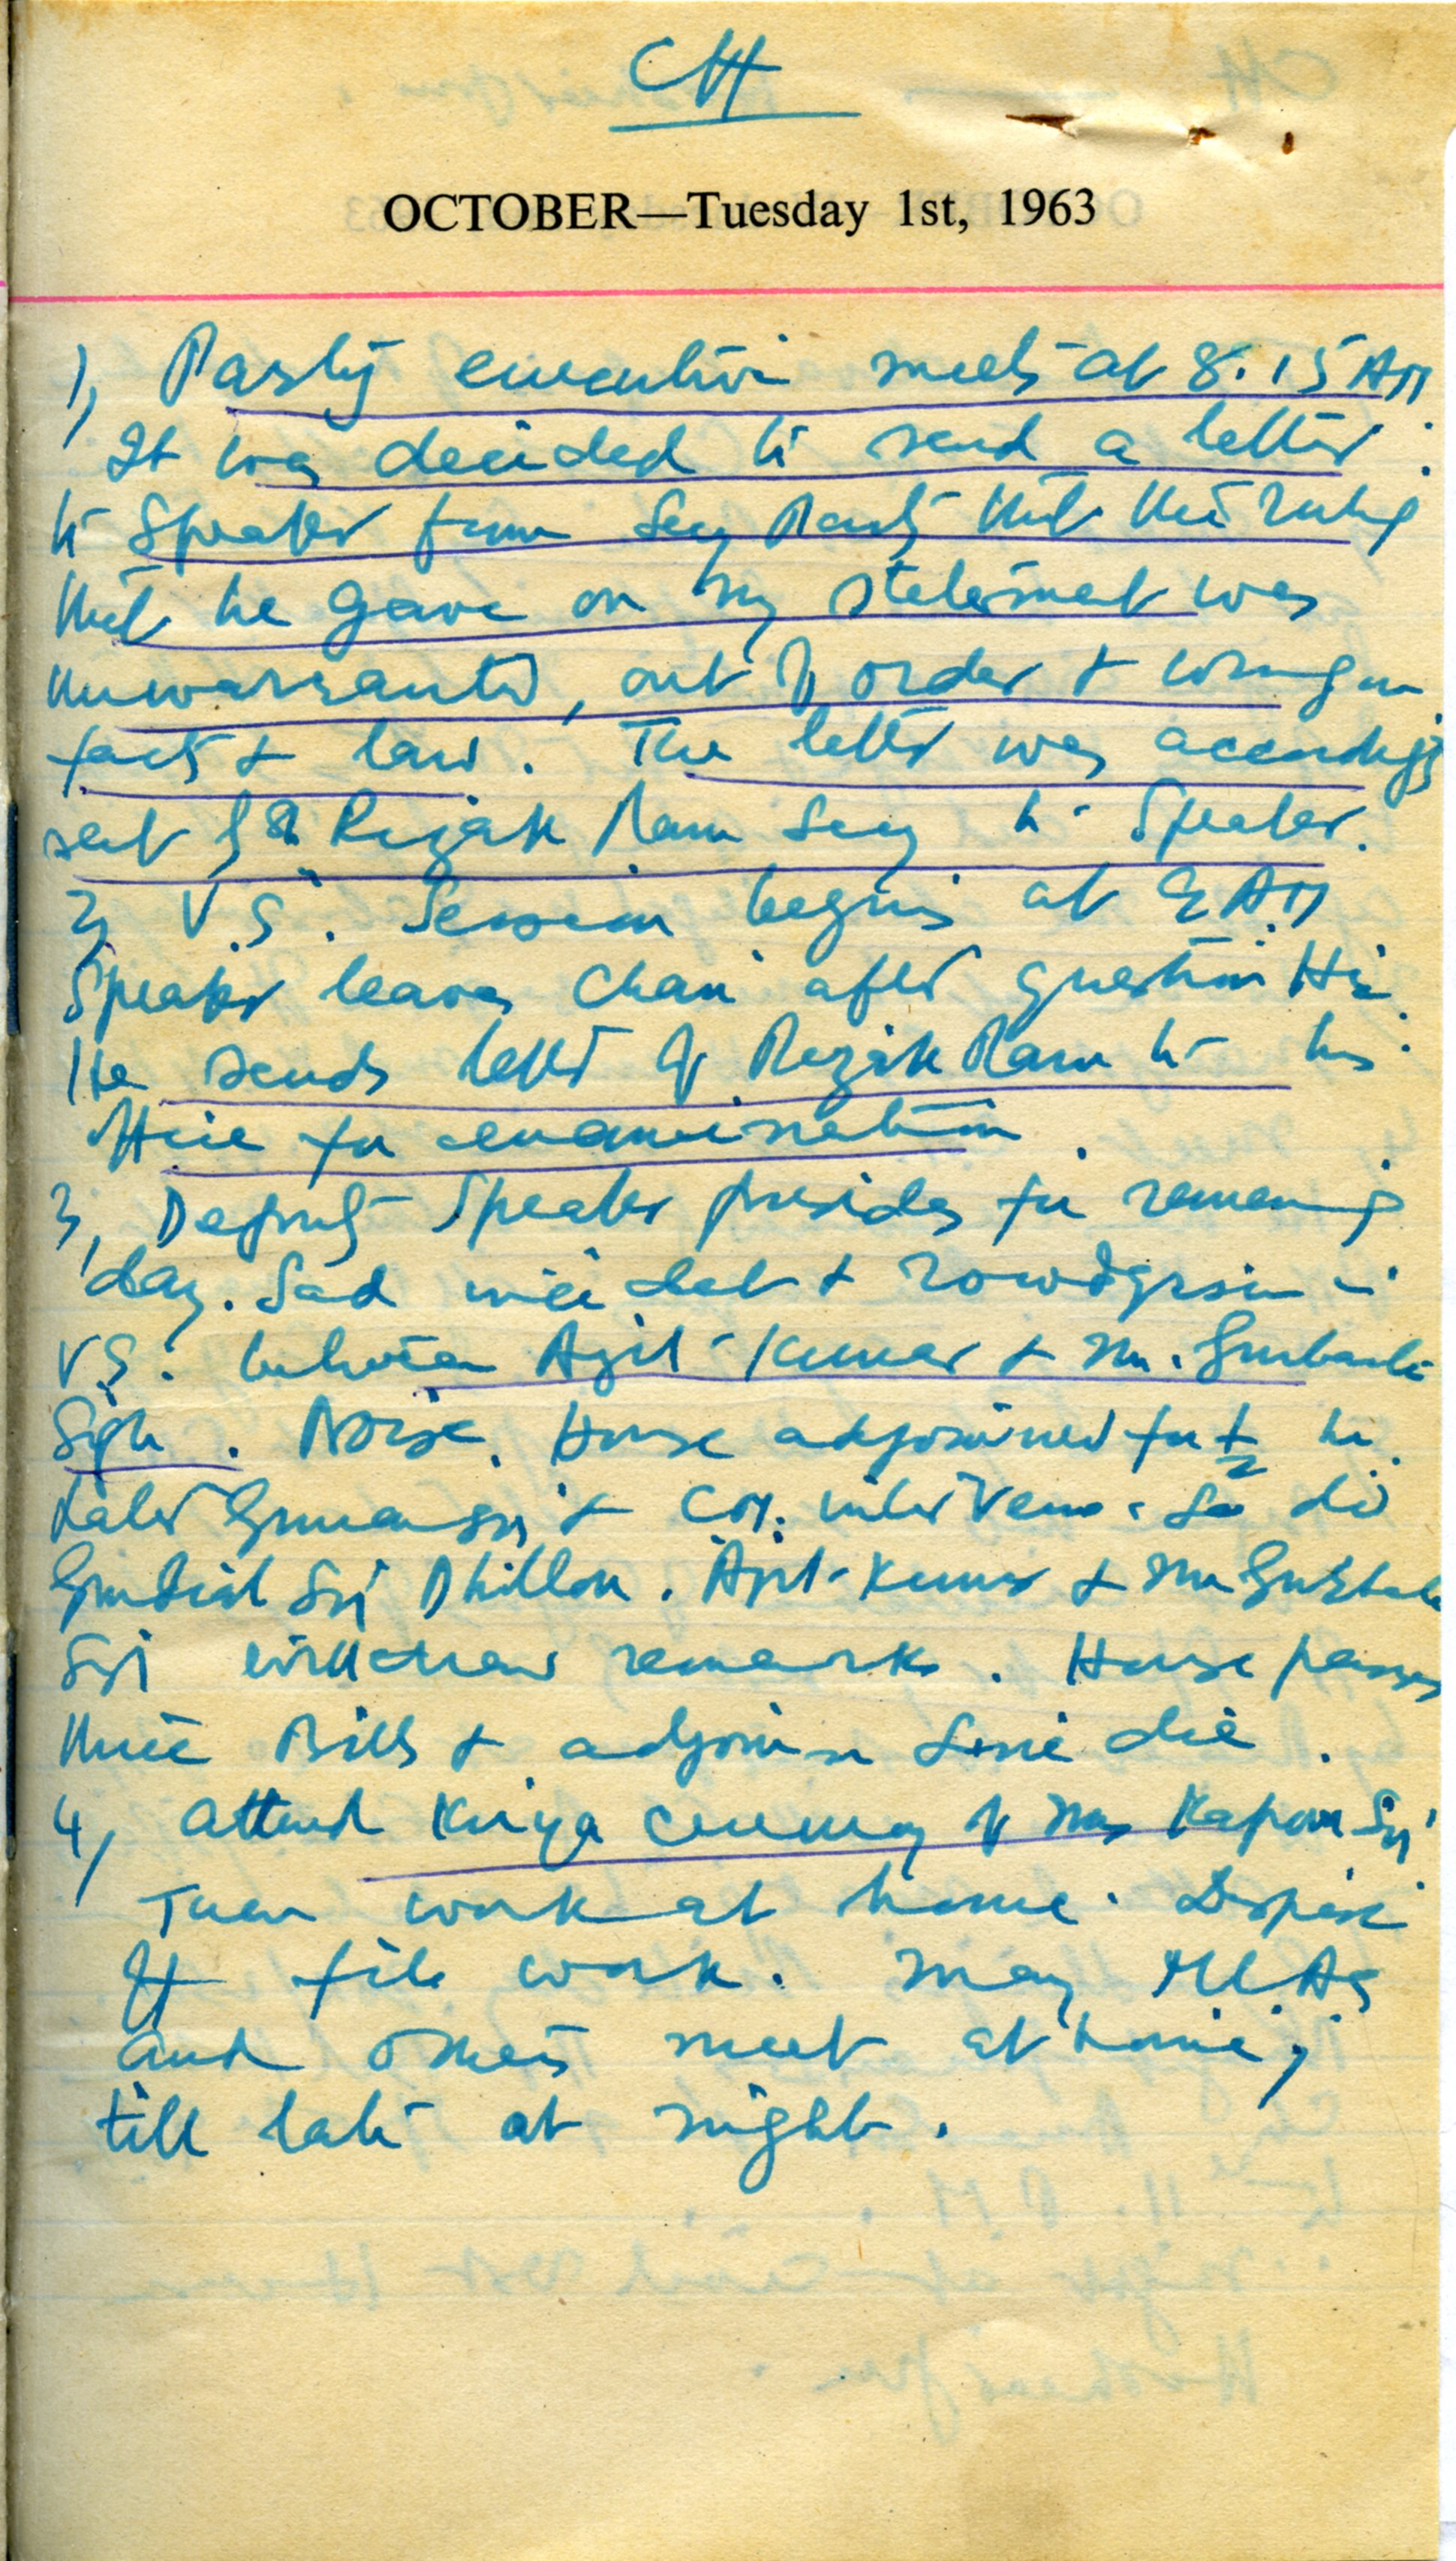 CH
OCTOBER—Tuesday 1st, 1963
1, Party executive meets at 8.15 AM
It was decided to send a letter
to Speaker from Secy Party that the ruling
that he gave on my statement was
unwarranted, out of order & wrong on
facts & law. The letter was accordingly
sent by Sh Rizak Ram Secy to Speaker.
2, V.S. Session begins at 9 AM
Speaker leaves Chair after question Hr.
He sends letter of Rizak Ram to his
office for examination.
3, Deputy Speaker presides for remaining
day. Sad incident & rowdyism in
VS. between Ajit Kumar & Mr. Gurbachan
Singh. Noise. House adjourned for ½ hr.
Later & CM. intervene. So did
Gurdial Singh Dhillon. Ajit Kumar & Mr Gurbachan
Singh withdraw remarks. House passes
three Bills & adjourns Sine die.
4, Attend Kirya ceremony of Mrs Kapoor Singh
Then work at home. Dispose
off file work. Many MLAs
and others meet at home,
till late at night.